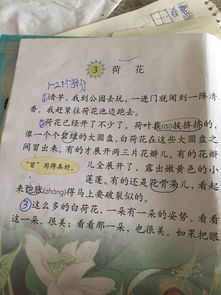 3 荷花
1-2人部分
①清早，我到公园去玩，一进门就闻到一阵清
香。我赶紧往荷花池边跑去。
②荷花已经开了不少了。荷叶挨(āi)挨挤挤的，
像一个个碧绿的大圆盘。白荷花在这些大圆盘之
间冒出来。有的才展开两三片花瓣儿。有的花瓣
儿全展开了，露出嫩黄色的小
“冒”用得真好。
莲蓬。有的还是花骨朵儿，看起
来饱胀(zhàng)得马上要破裂似的。
③这么多的白荷花，一朵有一朵的姿势。看看
这一朵，很美；看看那一朵，也很美。如果把眼